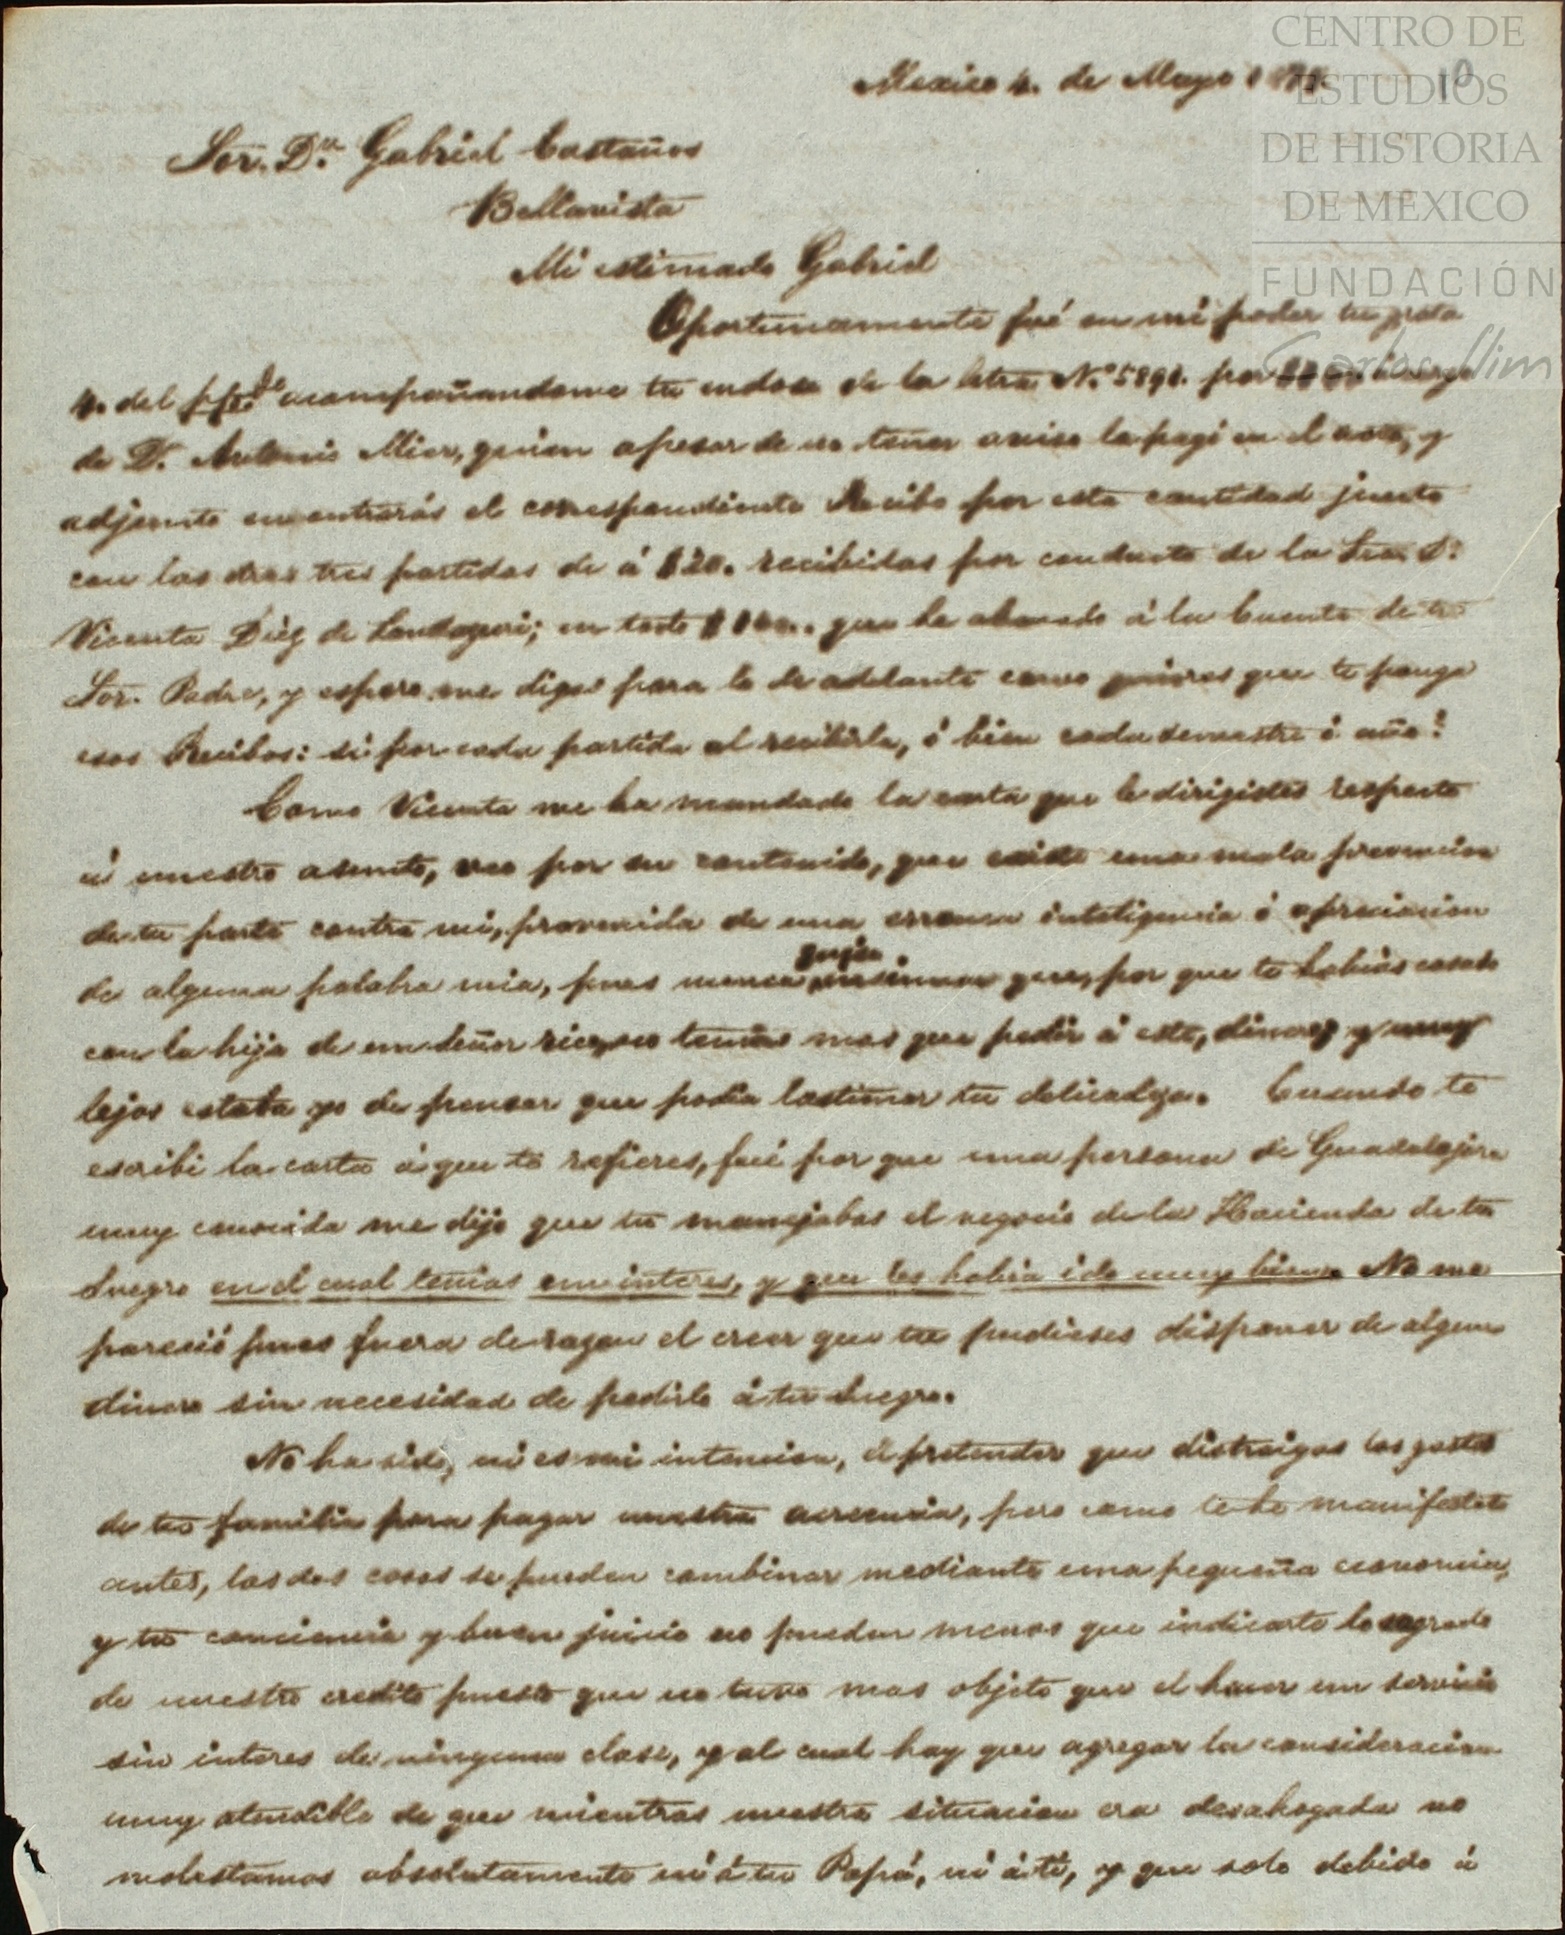 CENTRO DE
ESTUDIOS
DE HISTORIA
DE MEXICO
FUNDACIÓN
Carlos Slim
10
Mexico 4. de Mayo
Sor. Dn. Gabriel Castaños
Bellavista
Mi estimado Gabriel
Oportunamente fué en mi poder tu grata
4. del ppdo. acompañandome tu endoso de la letra No. 5891. por cargo
de D. Antonio Mier, quien apesar de no tener aviso la pagó en el acto, y
adjunto encontrarás el correspondiente Recibo por esta cantidad junto
con las otras tres partidas de á $20. recibidas por conducto de la Sra. Da.
Vicenta Diez de; en todo que he abonado á la Cuenta de tu
Sor. Padre, y espero me digas para lo de adelante como quieres que te ponga
esos Recibos: si por cada partida al recibirla, ó bien cada semestre ó año?
Como Vicenta me ha mandado la carta que le dirigistes respecto
á nuestro asunto, veo por su contenido, que existe una mala prevencion
de tu parte contra mi, provenida de una erronea inteligencia ó apreciacion
de alguna palabra mia, pues nunca quise insinuar que, por que te habias casado
con la hija de un Señor rico, no tenias mas que pedir á este, dinero, y muy
lejos estaba yo de pensar que podia lastimar tu delicadeza. Cuando te
escribi la carta á que te refieres, fué por que una persona de Guadalajara
muy conocida me dijo que tu manejabas el negocio de la Hacienda de tu
Suegro en el cual tenias un interes, y que les habia ido muy bien. No me
pareció pues fuera de razon el creer que tu pudieses disponer de algun
dinero sin necesidad de pedirlo á tu Suegro.
No ha sido, ni es mi intencion, el pretender que distraigas los gastos
de tu familia para pagar nuestra acreencia, pero como te he manifestado
antes, las dos cosas se pueden combinar mediante una pequeña economia,
y tu conciencia y buen juicio no pueden menos que indicarte lo sagrado
de nuestro credito puesto que no tuvo mas objeto que el hacer un servicio
sin interes de ninguna clase, y al cual hay que agregar la consideracion
muy atendible de que mientras nuestra situacion era desahogada no
molestamos absolutamente ni á tu Papá, ni á ti, y que solo debido á